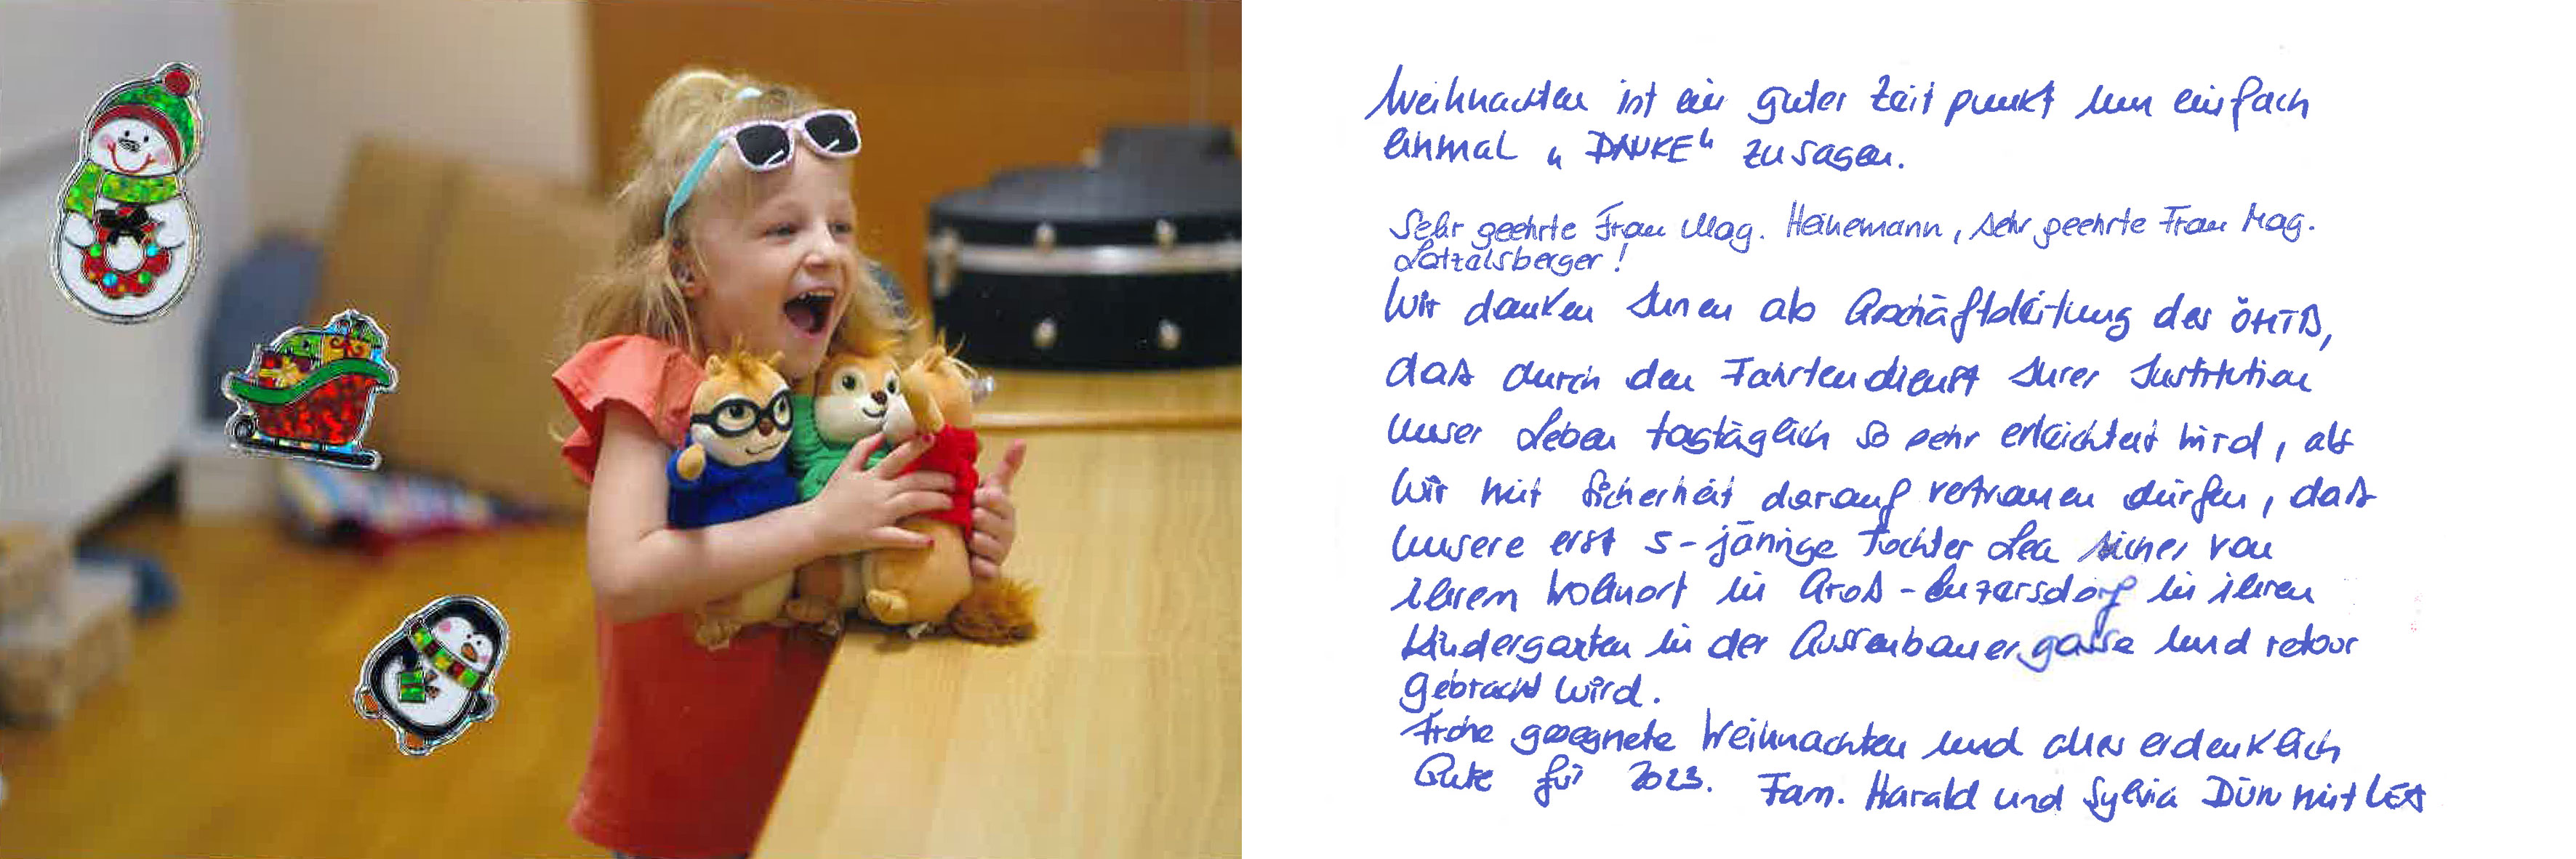 Weihnachten ist ein guter Zeitpunkt um einfach
einmal „DANKE“ zu sagen.
Sehr geehrte Frau Mag. Heinemann, sehr geehrte Frau Mag.
Latzelsberger!
Wir danken Ihnen als Geschäftsleitung des ÖHTB,
daß durch den Fahrtendienst Ihrer Institution
unser Leben tagtäglich so sehr erleichtert wird, als
wir mit Sicherheit darauf vertrauen dürfen, daß
unsere erst 5-jährige Tochter Lea sicher von
ihrem Wohnort in Groß-Enzersdorf in ihren
Kindergarten in der Gussenbauergasse und retour
gebracht wird.
Frohe gesegnete Weihnachten und alles erdenklich
Gute für 2023. Fam. Harald und Sylvia DÜN mit LEA